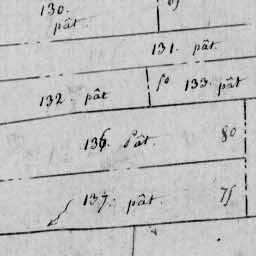 130.
pât
131. pât.
132. pât
50 133. pât
136. Pât. 80
137. pât. 75